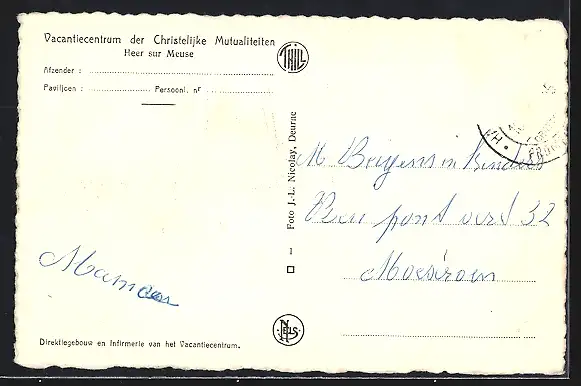 Vacantiecentrum der Christelijke Mutualiteiten
Heer sur Meuse
Afzender :
Paviljoen : Persoonl. nr
THILL
Foto J.-L. Nicolay, Deurne
1
M Brijens en Kinders
Rue pont vert 32
Moescroen
Maman
NELS
Direktiegebouw en Infirmerie van het Vacantiecentrum.